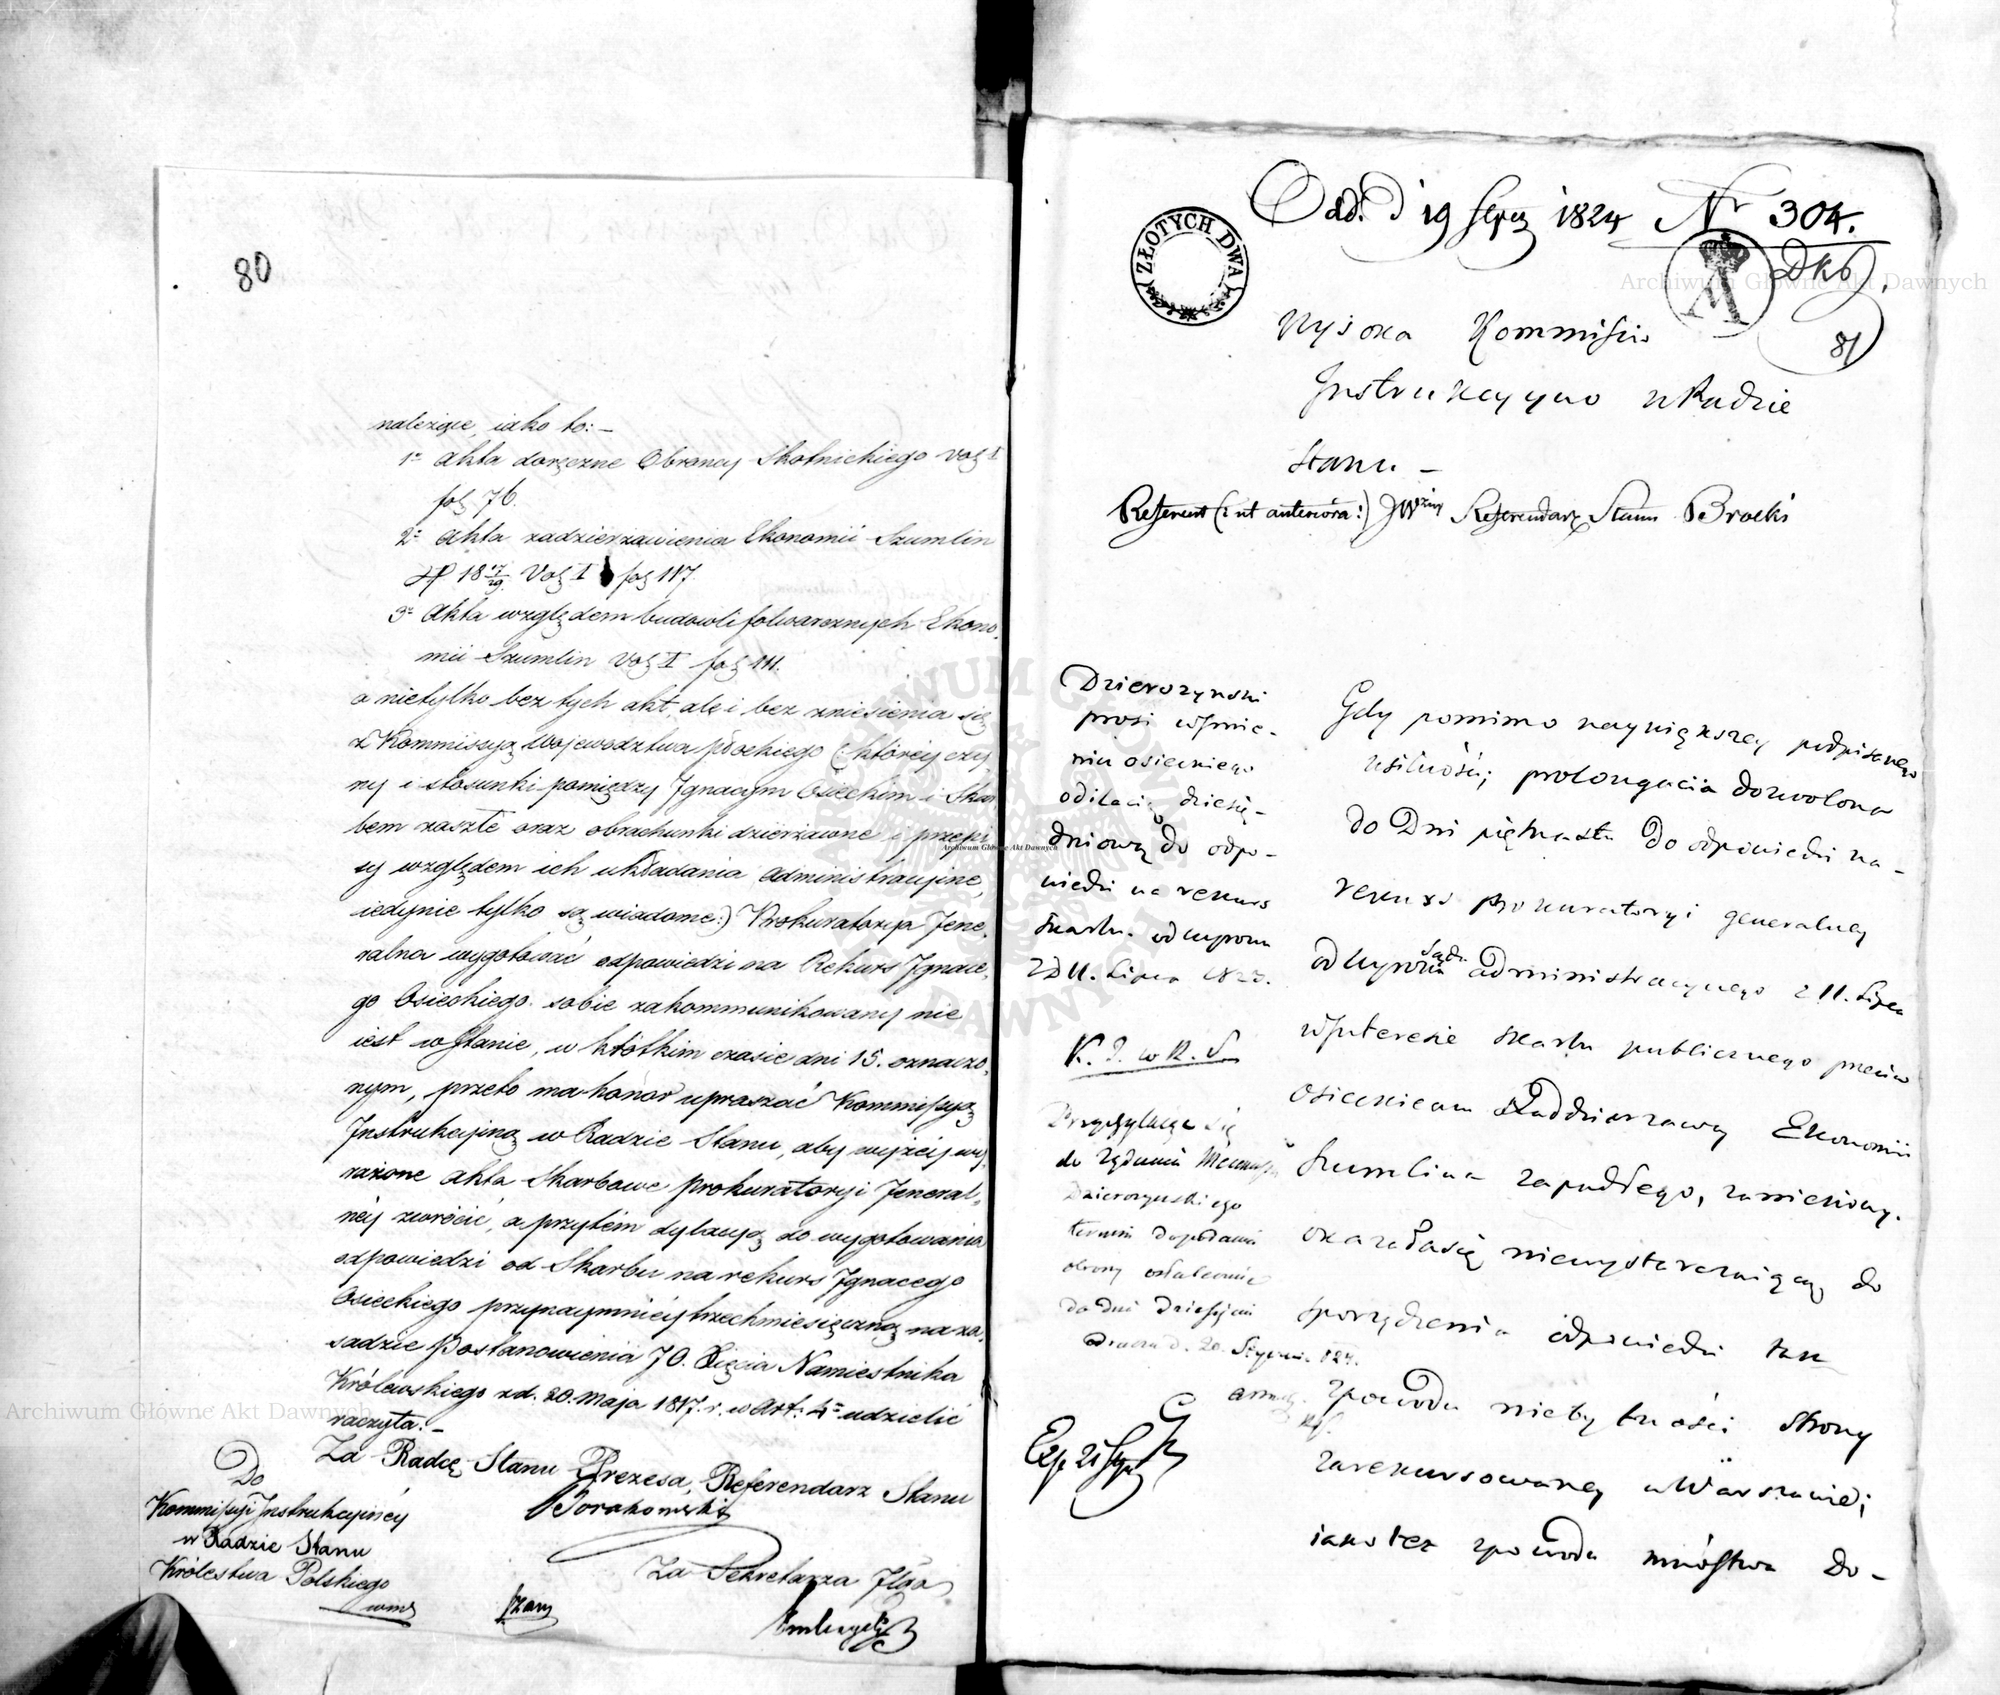 80
należące, iako to:-
1º Akta doręczne Obrońcy Skotnickiego Vol I
fol 76.
2º Akta zadzierzawienia Ekonomii Szumlin
18 17/29. Vol I fol 117.
3º Akta względem budowli folwarcznych Ekono-
mii Szumlin Vol I fol 111.
a nietylko bez tych akt, ale i bez zniesienia się
z Kommissyą Województwa płockiego (: którey czy-
ny i stosunki pomiędzy Ignacym Osieckim i Skar-
bem zaszłe oraz obrachunki dzierżawne i przepi-
sy względem ich układania administracyine,
iedynie tylko są wiadome:) Prokuratorya Jene-
ralna wygotować odpowiedzi na Rekurs Ignace-
go Osieckiego sobie zakommunikowany nie
iest w Stanie, w krótkim czasie dni 15. oznaczo-
nym, przeto ma honor upraszać Kommissyą
Instrukcyiną w Radzie Stanu, aby wyżéy wy-
rażone akta Skarbowe prokuratoryi Jeneral-
néy zwrócić, a przytém dylacyą do wygotowania
odpowiedzi od Skarbu na rekurs Ignacego
Osieckiego przynaymniéy trzechmiesięczną na za-
sadzie Postanowienia JO. Xięcia Namiestnika
Królewskiego z d. 20. Maja 1817. r. w Art: 4º udzielić
raczyła:-
Za Radcę Stanu Prezesa, Referendarz Stanu
Do
Kommissyi Instrukcyinéy
w Radzie Stanu
Królestwa Polskiego
Za Sekretarza
Odd. d 19 1824 Nr 304.
ZŁOTYCH DWA
81
Wysoka Kommissio
Instrukcyyno w Radzie
Stanu -
Referent (: ut anteriora :) Referendarz Stanu Brocki
Dzierożynski
prosi w Imie-
niu osieckiego
o dilacią dziesię-
dniową do odpo-
wiedzi na rekurs
Skarbu. od wyroku
z D 11. Lipca 1823.
K. I. w R. S.
Przychylaiąc się
do żądania
Dzierozynskiego
termin do podania
obrony ostatecznie
do dni dziesięciu
d. 20. Stycznia 824.
Gdy pomimo naywiększey podpisanego
usilności; prolongacia dozwolona
do Dni piętnastu do odpowiedzi na-
rekurs prokuratoryi generalney
od wyroku Sądu administracyynego z 11. Lipca
w Interesie skarbu publicznego przeciw
osieckiemu z Zaddzierzawy Ekonomii
Szumlina zapadłego, zaniesiony.
okazała się niewystarczaiącą do
sporządzenia odpowiedzi tak
z powodu niebytności strony
zarekursowaney w Warszawie;
iako tez z powodu mnóstwa do-
Archiwum Główne Akt Dawnych
Archiwum Główne Akt Dawnych
Archiwum Główne Akt Dawnych